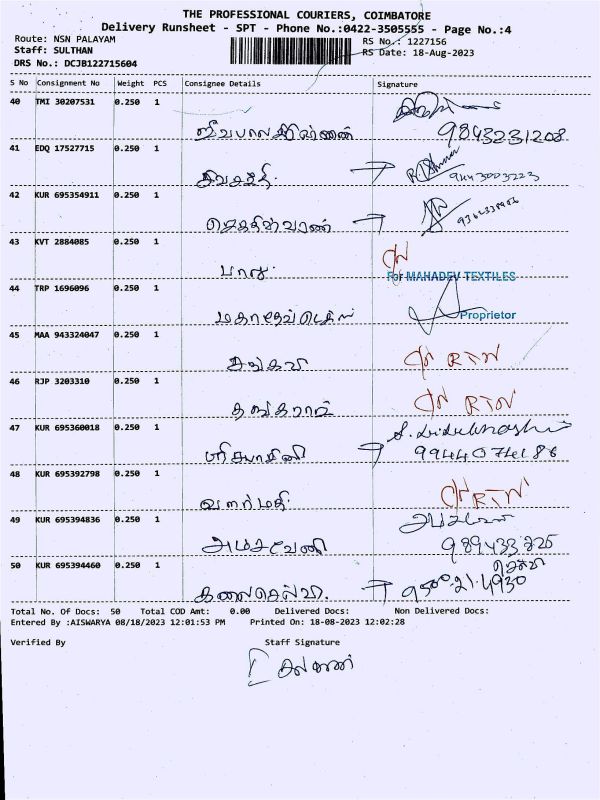 THE PROFESSIONAL COURIERS, COIMBATORE
Delivery Runsheet - SPT - Phone No.:0422-3505555 - Page No.:4
Route: NSN PALAYAM
RS No.: 1227156
Staff: SULTHAN
RS Date: 18-Aug-2023
DRS No.: DCJB122715604
S No Consignment No Weight PCS Consignee Details Signature
40 TMI 30207531 0.250 1
9843231208
41 EDQ 17527715 0.250 1
சிவசக்தி. 9443003223
42 KUR 695354911 0.250 1
43 KVT 2884085 0.250 1
பாலு.
44 TRP 1696096 0.250 1 For MAHADEV TEXTILES
Proprietor
45 MAA 943324047 0.250 1
சங்கவி RTN
46 RJP 3203310 0.250 1
தங்கராஜ் RTN
47 KUR 695360018 0.250 1
9944074186
48 KUR 695392798 0.250 1
வளர்மதி RTN
49 KUR 695394836 0.250 1
அமசவேணி
50 KUR 695394460 0.250 1
கலைசெல்வி. 950021.4930
Total No. Of Docs: 50 Total COD Amt: 0.00 Delivered Docs: Non Delivered Docs:
Entered By :AISWARYA 08/18/2023 12:01:53 PM Printed On: 18-08-2023 12:02:28
Verified By Staff Signature